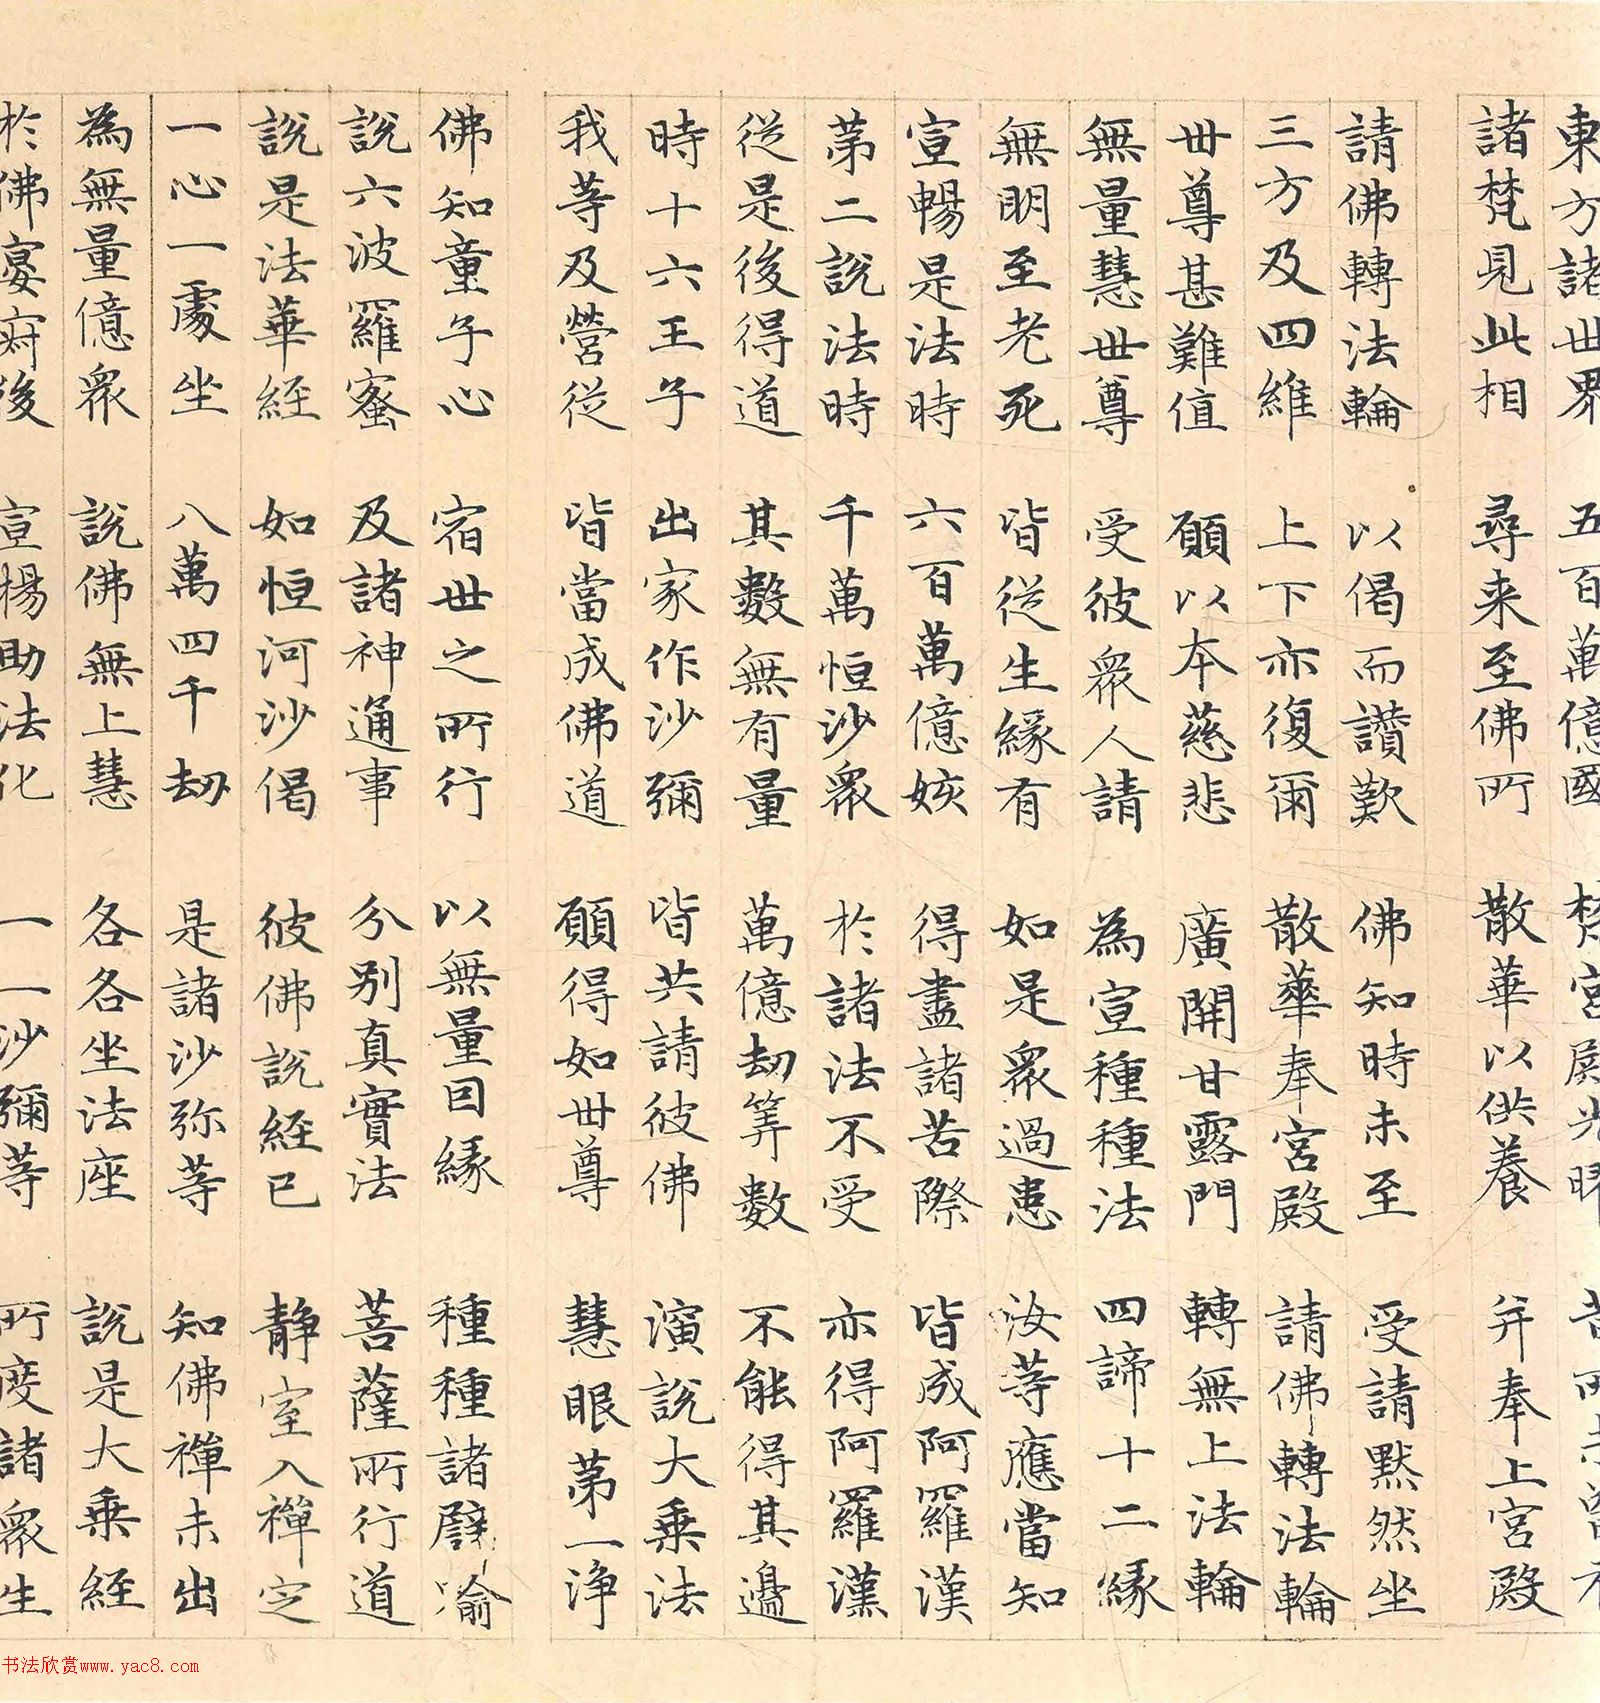 東方諸世界 五百萬億國 梵宮殿光曜 昔所未曾有
諸梵見此相 尋来至佛所 散華以供養 并奉上宮殿
請佛轉法輪 以偈而讃歎 佛知時未至 受請默然坐
三方及四維 上下亦復爾 散華奉宮殿 請佛轉法輪
世尊甚難值 願以本慈悲 廣開甘露門 轉無上法輪
無量慧世尊 受彼眾人請 為宣種種法 四諦十二緣
無明至老死 皆從生緣有 如是眾過患 汝等應當知
宣暢是法時 六百萬億姟 得盡諸苦際 皆成阿羅漢
第二說法時 千萬恒沙眾 於諸法不受 亦得阿羅漢
從是後得道 其數無有量 萬億劫筭數 不能得其邊
時十六王子 出家作沙彌 皆共請彼佛 演說大乗法
我等及營從 皆當成佛道 願得如世尊 慧眼第一淨
佛知童子心 宿世之所行 以無量因緣 種種諸譬喻
說六波羅蜜 及諸神通事 分別真實法 菩薩所行道
說是法華經 如恒河沙偈 彼佛說經已 靜室入禪定
一心一處坐 八萬四千劫 是諸沙弥等 知佛禪未出
為無量億眾 說佛無上慧 各各坐法座 說是大乗經
於佛宴寂後 宣揚助法化 一一沙彌等 所度諸眾生
书法欣赏www.yac8.com